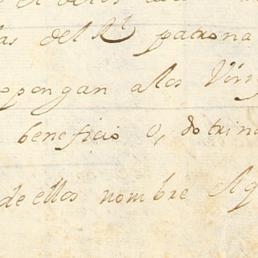 as del Rl patrona
opongan a los Vir
beneficio o, dotrina
de ellos nombre Ag